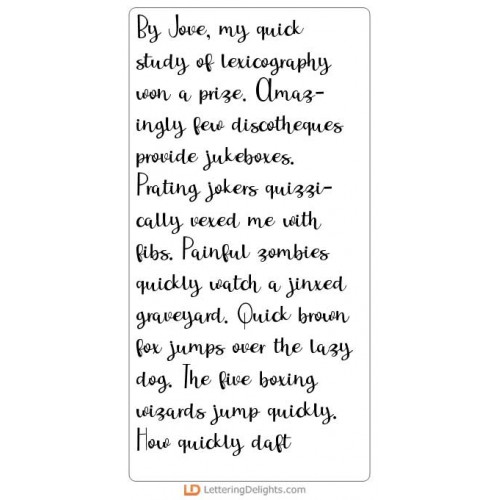 By Jove, my quick
study of lexicography
won a prize. Amaz-
ingly few discotheques
provide jukeboxes.
Prating jokers quizzi-
cally vexed me with
fibs. Painful zombies
quickly watch a jinxed
graveyard. Quick brown
fox jumps over the lazy
dog. The five boxing
wizards jump quickly.
How quickly daft
LD LetteringDelights.com